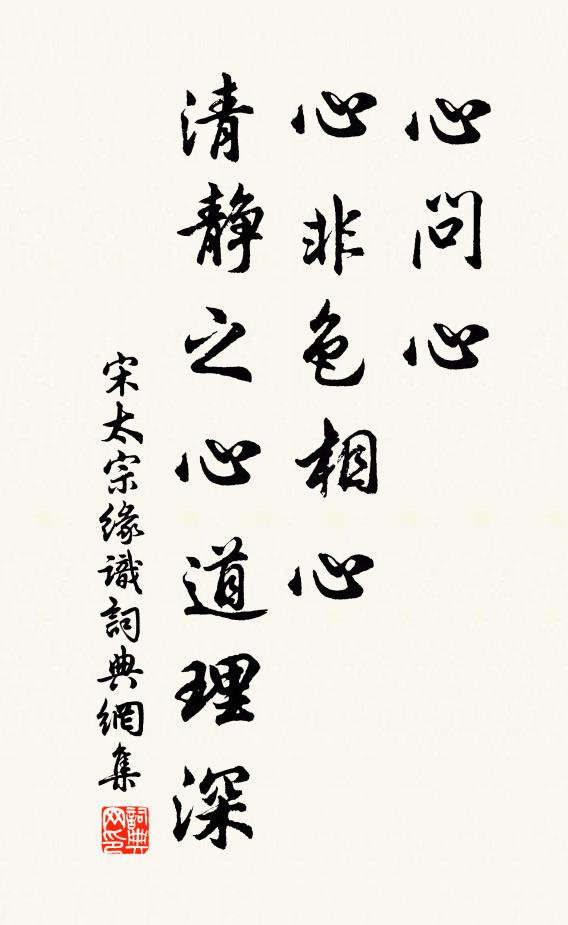 心問心
心非色相心
清靜之心道理深
宋太宗緣識詞典網集
詞典
网印